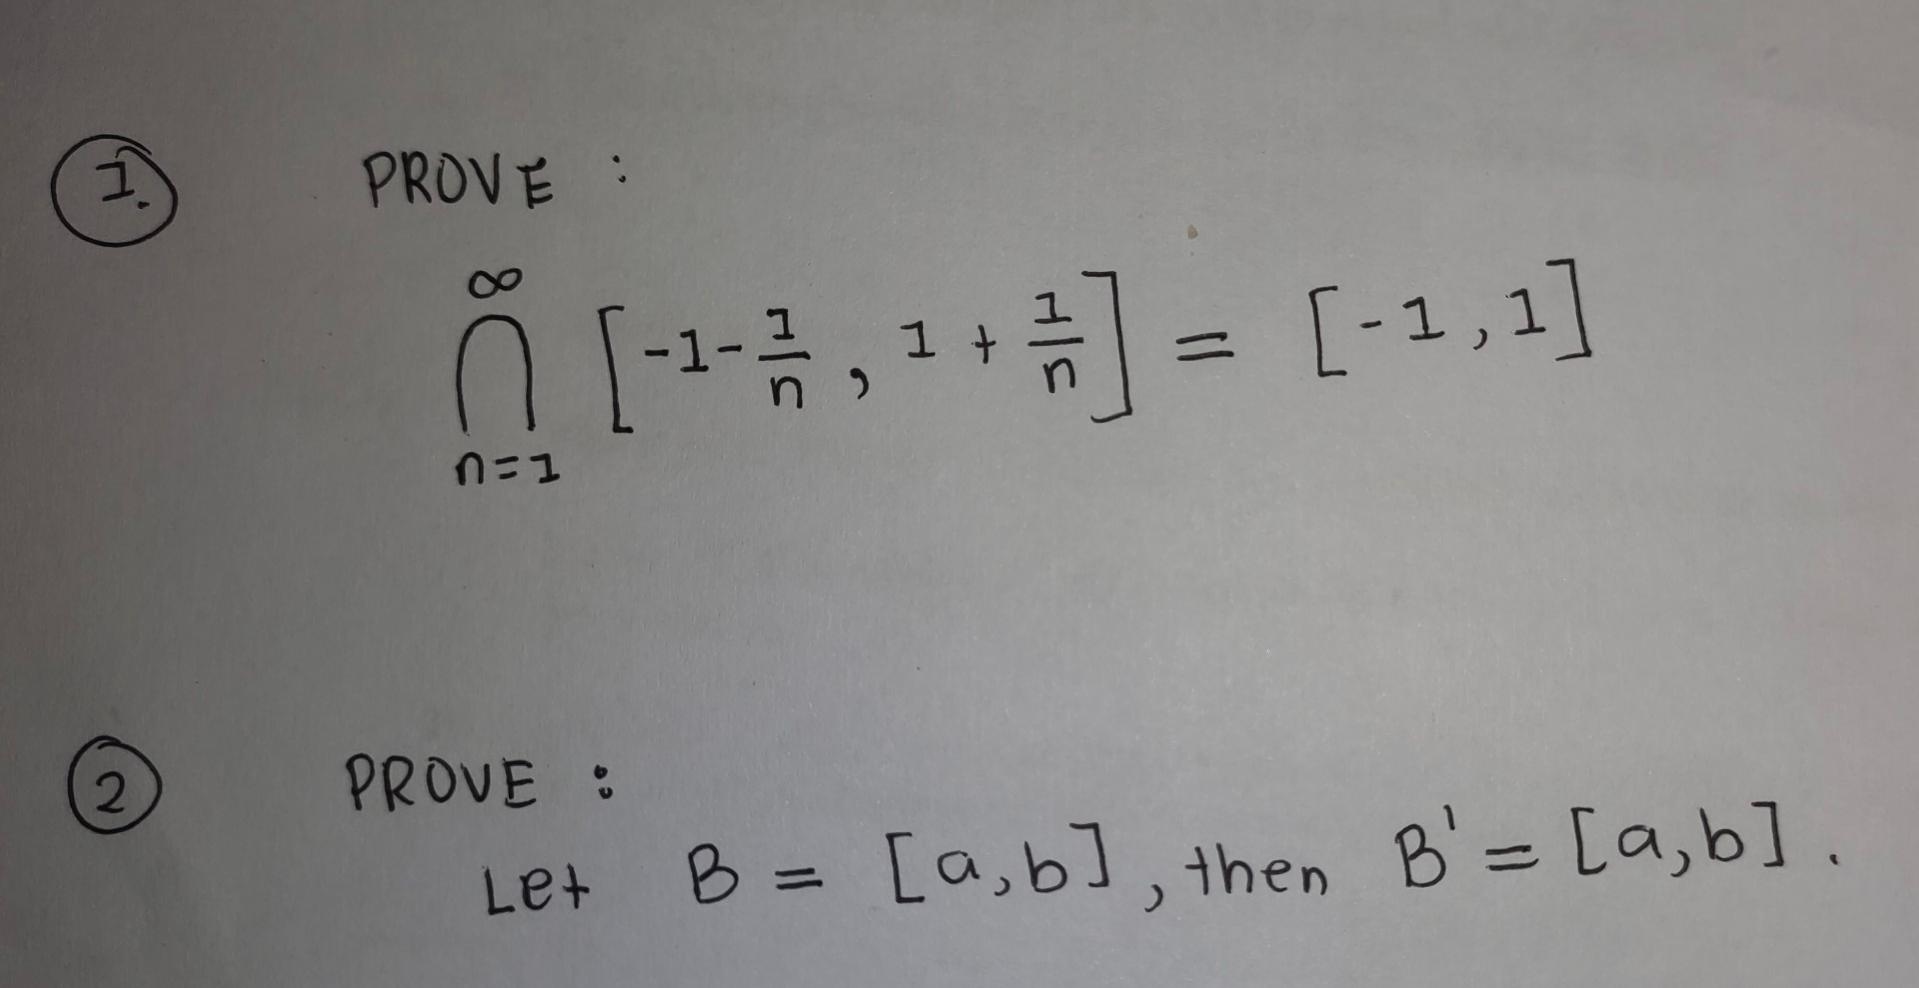 1. PROVE :
∞
⋂ [-1-1/n, 1+1/n] = [-1,1]
n=1
2 PROVE :
Let B = [a,b], then B' = [a,b].